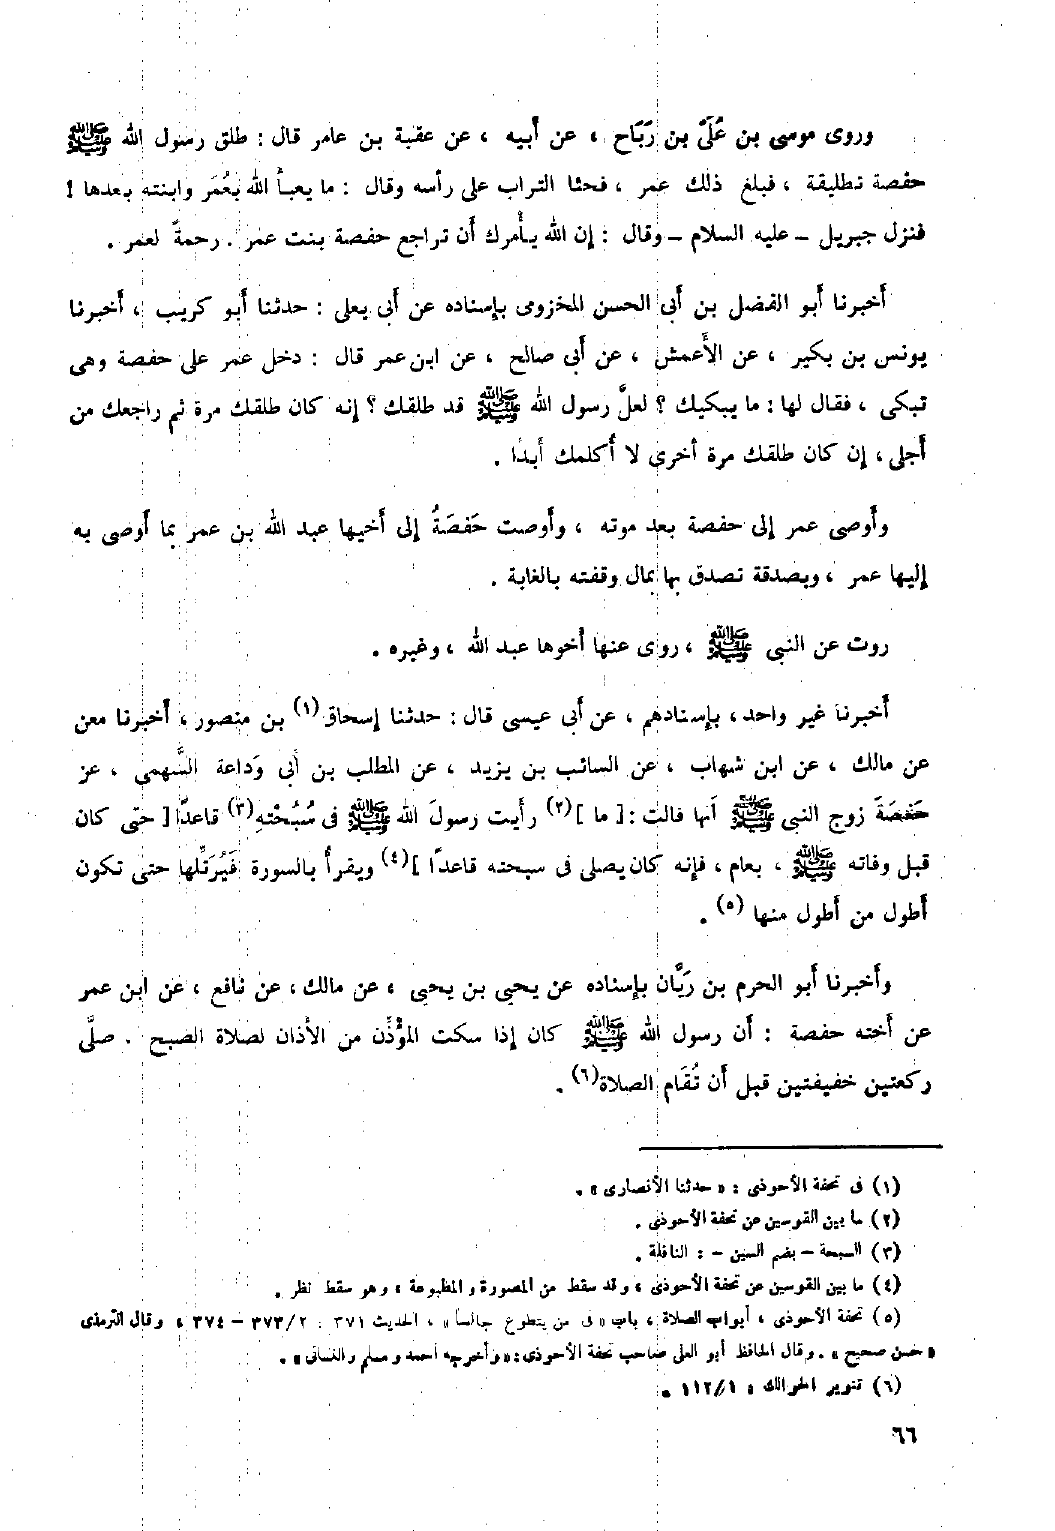 وروى موسى بن عُلَىّ بن رَبَاح ، عن أَبيه ، عن عقبة بن عامر قال : طلق رسول الله ﷺ
حفصة تطليقة ، فبلغ ذلك عمر ، فحثا التراب على رأسه وقال : ما يعبأُ الله بعُمَر وابنته بعدها !
فنزل جبريل – عليه السلام – وقال : إن الله يأْمرك أَن تراجع حفصة بنت عمر . رحمةً لعمر .
أَخبرنا أَبو الفضل بن أَبى الحسن المخزومى بإسناده عن أَبى يعلى : حدثنا أَبو كريب ، أَخبرنا
يونس بن بكير ، عن الأَعمش ، عن أَبى صالح ، عن ابن عمر قال : دخل عمر على حفصة وهى
تبكى ، فقال لها : ما يبكيك ؟ لعلَّ رسول الله ﷺ قد طلقك ؟ إنه كان طلقك مرة ثم راجعك من
أَجلى ، إن كان طلقك مرة أخرى لا أُكلمك أَبدًا .
وأَوصى عمر إلى حفصة بعد موته ، وأَوصت حَفصَةُ إلى أَخيها عبد الله بن عمر بما أَوصى به
إليها عمر ، وبصدقة تصدق بها بمال وقفته بالغابة .
روت عن النبى ﷺ ، روى عنها أَخوها عبد الله ، وغيره .
أَخبرنا غير واحد ، بإسنادهم ، عن أَبى عيسى قال : حدثنا إسحاق (١) بن منصور ، أَخبرنا معن
عن مالك ، عن ابن شهاب ، عن السائب بن يزيد ، عن المطلب بن أَبى وَداعة السَّهمى ، عن
حَفصَةَ زوج النبى ﷺ أَنها قالت : [ ما ] (٢) رأَيت رسولَ الله ﷺ فى سُبْحْتهِ (٣) قاعدًا [ حتى كان
قبل وفاته ﷺ ، بعام ، فإنه كان يصلى فى سبحته قاعدًا ] (٤) ويقرأُ بالسورة فَيُرَتِّلها حتى تكون
أَطول من أَطول منها (٥) .
وأَخبرنا أَبو الحرم بن رَيَّان بإسناده عن يحيى بن يحيى ، عن مالك ، عن نافع ، عن ابن عمر
عن أُخته حفصة : أَن رسول الله ﷺ كان إذا سكت المؤَذِّن من الأَذان لصلاة الصبح . صلَّى
ركعتين خفيفتين قبل أَن تُقَام الصلاة (٦) .
(١) فى تحفة الأحوذى : « حدثنا الأنصارى » .
(٢) ما بين القوسين عن تحفة الأحوذى .
(٣) السبحة – بضم السين – : النافلة .
(٤) ما بين القوسين عن تحفة الأحوذى ، وقد سقط من المصورة والمطبوعة ، وهو سقط نظر .
(٥) تحفة الأحوذى ، أبواب الصلاة ، باب « فى من يتطوع جالساً » ، الحديث ٣٧١ : ٣٧٣/٢ – ٣٧٤ ، وقال الترمذى
« حسن صحيح » . وقال الحافظ أبو العلى صاحب تحفة الأحوذى : « وأخرجه أحمد ومسلم والنسائى » .
(٦) تنوير الحوالك : ١١٢/١ .
٦٦